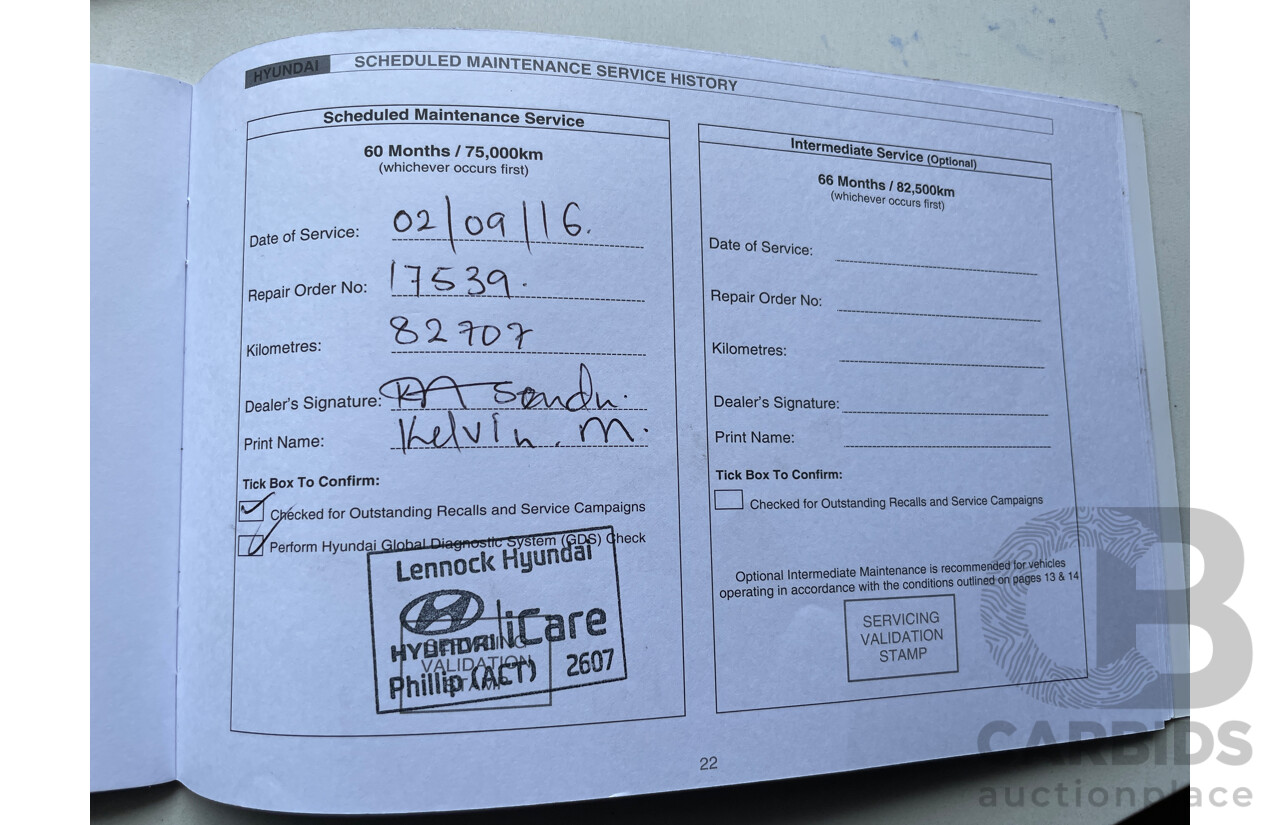 HYUNDAI SCHEDULED MAINTENANCE SERVICE HISTORY
Scheduled Maintenance Service
60 Months / 75,000km
(whichever occurs first)
Date of Service: 02/09/16.
Repair Order No: 17539.
Kilometres: 82707
Dealer's Signature:
Print Name: Kelvin. M.
Tick Box To Confirm:
Checked for Outstanding Recalls and Service Campaigns
Perform Hyundai Global Diagnostic System (GDS) Check
Lennock Hyundai
HYUNDAI iCare
Phillip (ACT) 2607
SERVICING
VALIDATION
STAMP
Intermediate Service (Optional)
66 Months / 82,500km
(whichever occurs first)
Date of Service:
Repair Order No:
Kilometres:
Dealer's Signature:
Print Name:
Tick Box To Confirm:
Checked for Outstanding Recalls and Service Campaigns
Optional Intermediate Maintenance is recommended for vehicles
operating in accordance with the conditions outlined on pages 13 & 14
SERVICING
VALIDATION
STAMP
22
CB
CARBIDS
auctionplace